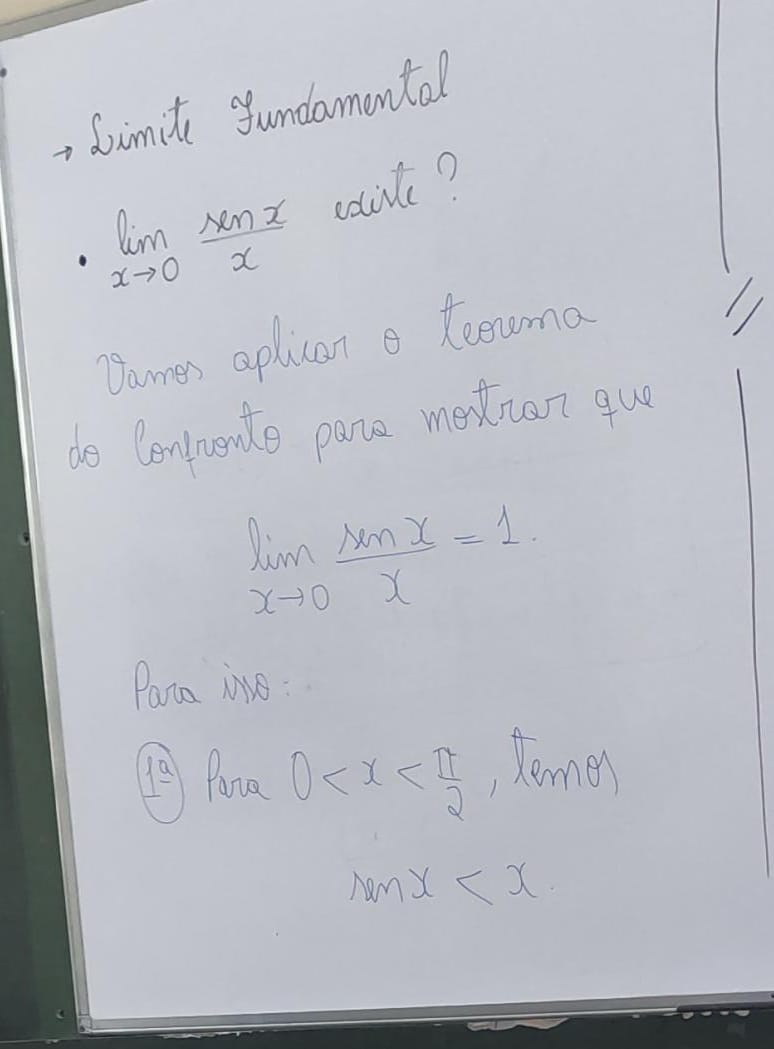 → Limite Fundamental
• lim x→0 sen x / x existe?
Vamos aplicar o teorema
do Confronto para mostrar que
lim x→0 sen x / x = 1.
Para isso:
1ª Para 0 < x < π/2, temos
sen x < x.